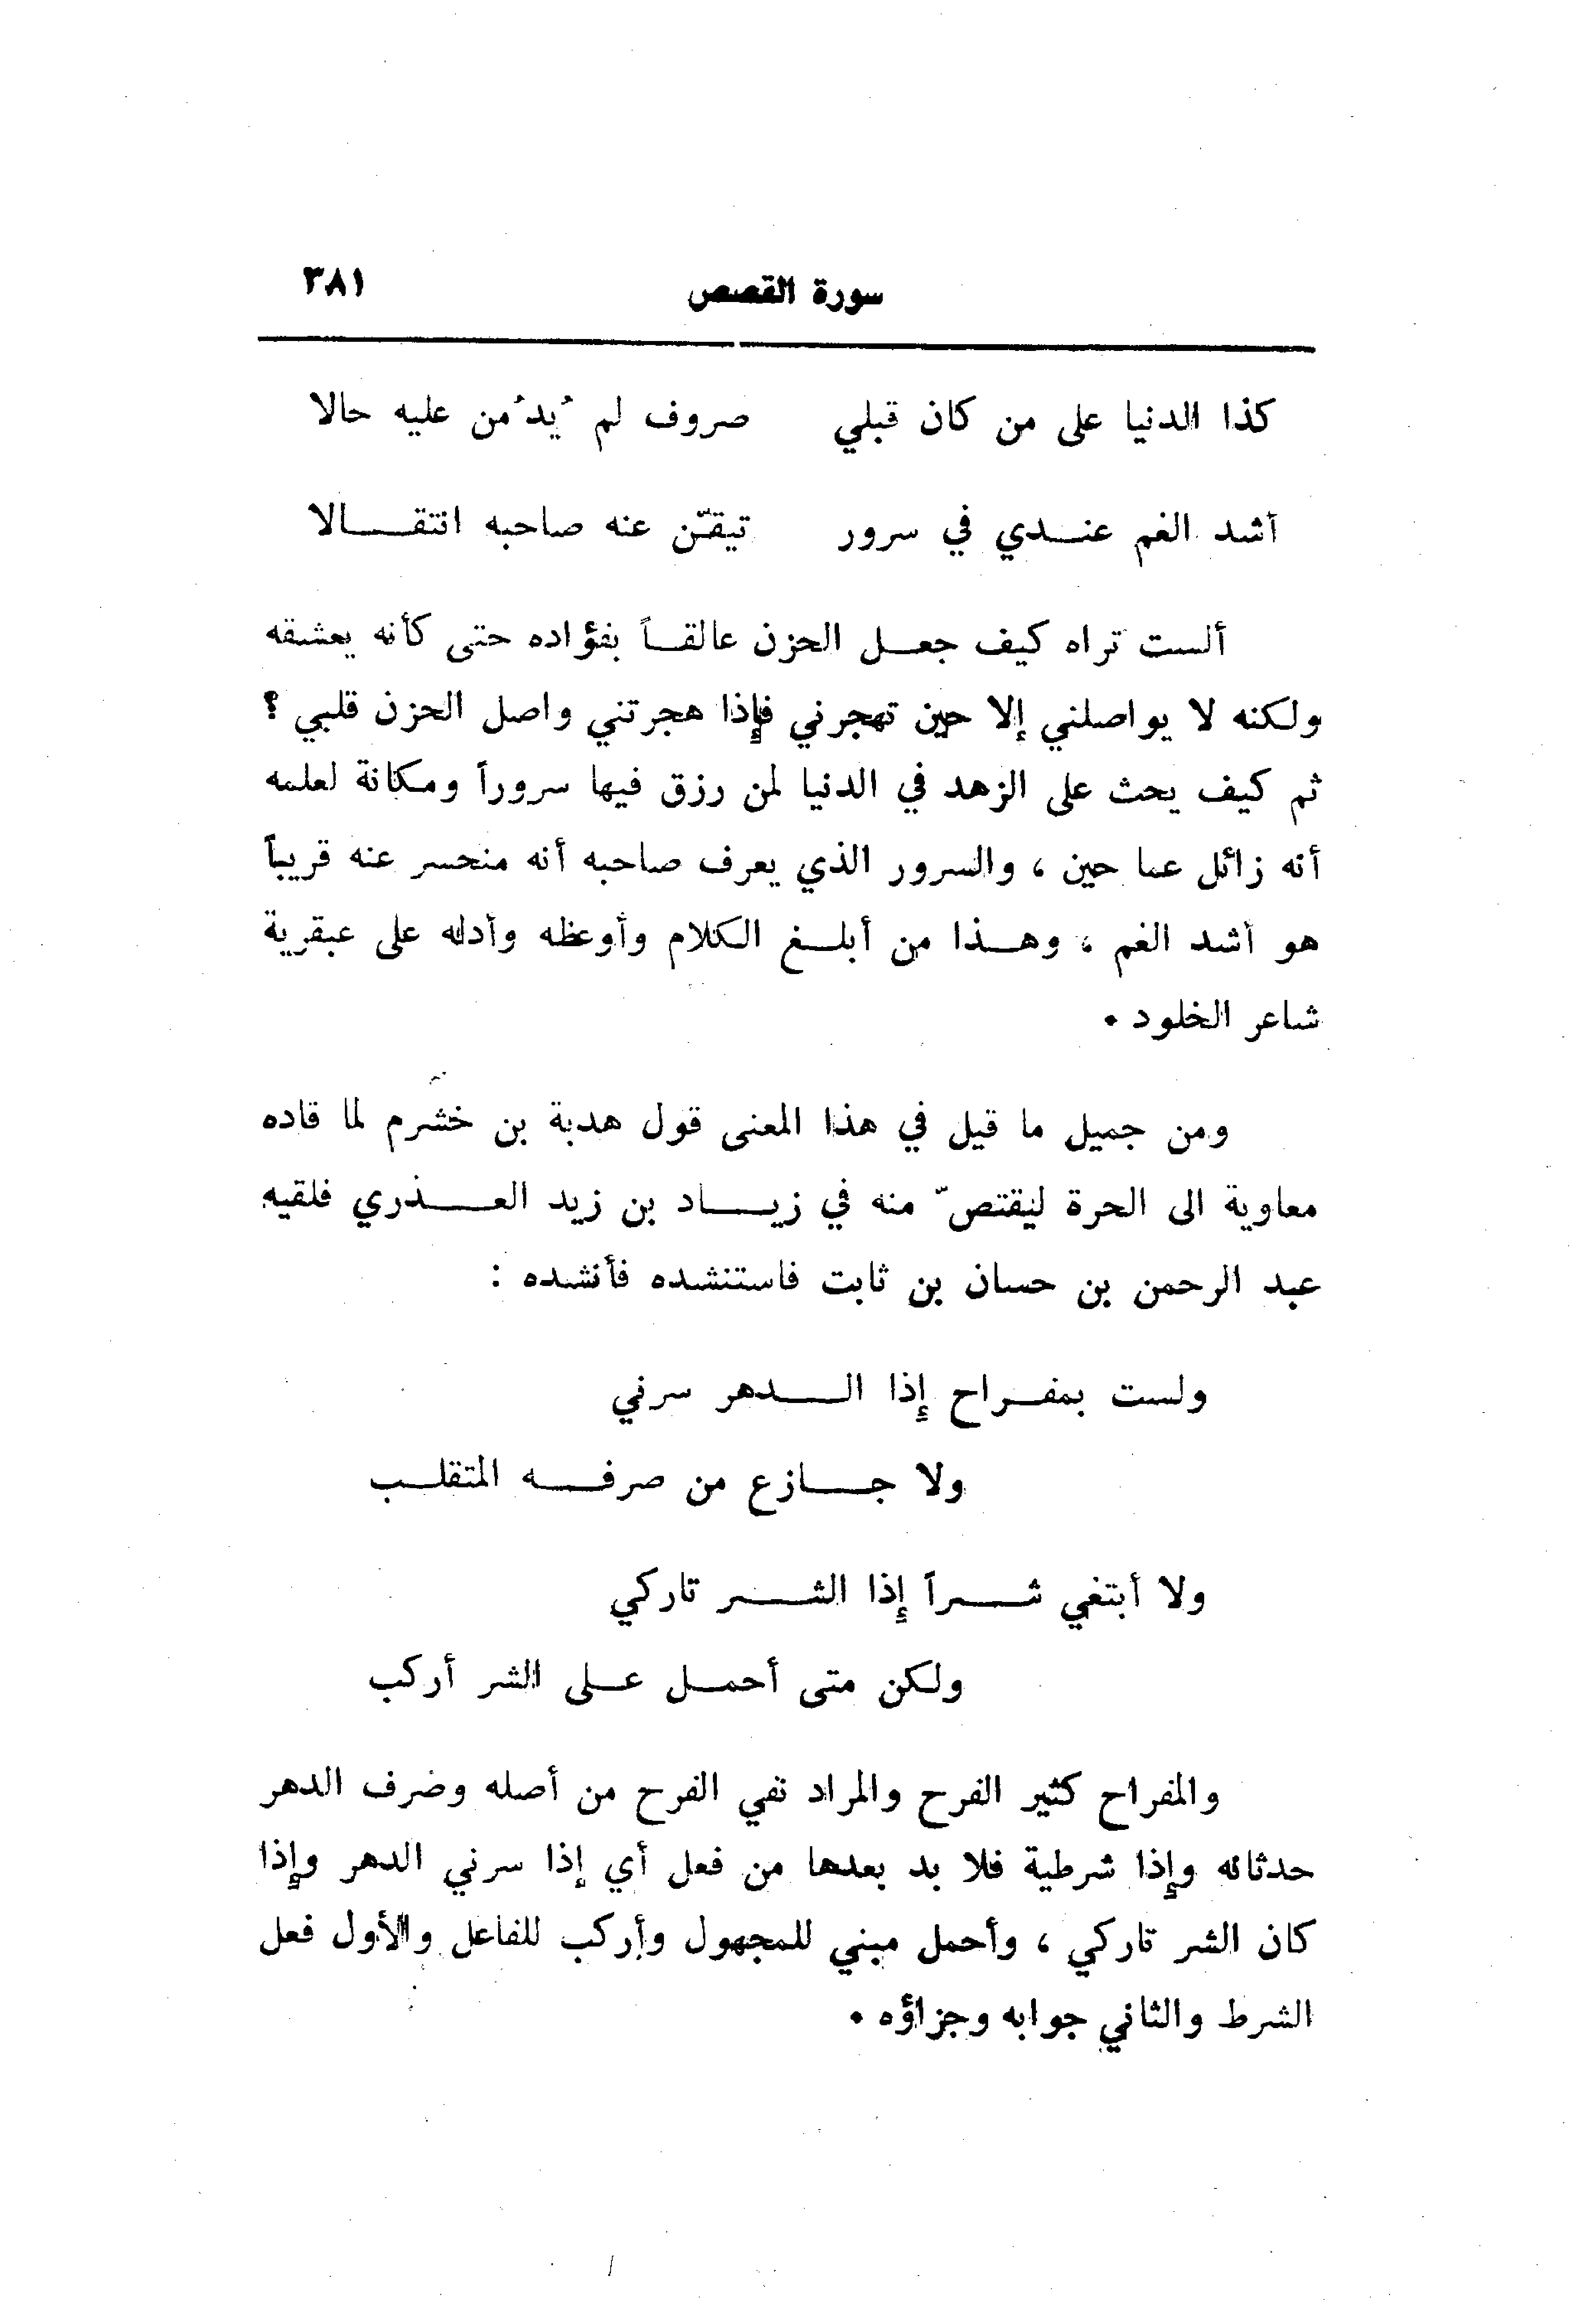 سورة القصص ٣٨١
كذا الدنيا على من كان قبلي صروف لم يُدُمن عليه حالا
أشد الغم عندي في سرور تيقّن عنه صاحبه انتقالا
ألست تراه كيف جعل الحزن عالقاً بفؤاده حتى كأنه يعشقه
ولكنه لا يواصلني إلا حين تهجرني فإذا هجرتني واصل الحزن قلبي ؟
ثم كيف يحث على الزهد في الدنيا لمن رزق فيها سروراً ومكانة لعلمه
أنه زائل عما حين ، والسرور الذي يعرف صاحبه أنه منحسر عنه قريباً
هو أشد الغم ، وهذا من أبلغ الكلام وأوعظه وأدله على عبقرية
شاعر الخلود .
ومن جميل ما قيل في هذا المعنى قول هدبة بن خشرم لما قاده
معاوية الى الحرة ليقتصّ منه في زياد بن زيد العذري فلقيه
عبد الرحمن بن حسان بن ثابت فاستنشده فأنشده :
ولست بمفراح إذا الدهر سرني
ولا جازع من صرفه المتقلب
ولا أبتغي شراً إذا الشر تاركي
ولكن متى أحمل على الشر أركب
والمفراح كثير الفرح والمراد نفي الفرح من أصله وضرف الدهر
حدثانه وإذا شرطية فلا بد بعدها من فعل أي إذا سرني الدهر وإذا
كان الشر تاركي ، وأحمل مبني للمجهول وأركب للفاعل والأول فعل
الشرط والثاني جوابه وجزاؤه .